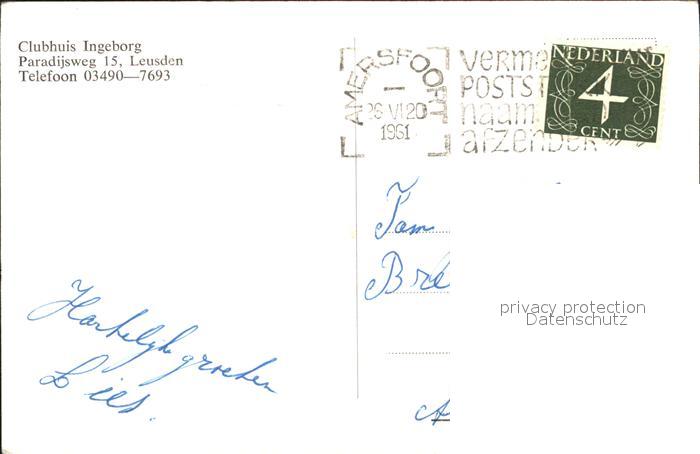 Clubhuis Ingeborg
Paradijsweg 15, Leusden
Telefoon 03490—7693
AMERSFOORT
26 VI 20
1961
verme
POSTST
naam
afzender
NEDERLAND
4
CENT
Fam
Bre
A
privacy protection
Datenschutz
Hartelijke groeten
Lies.